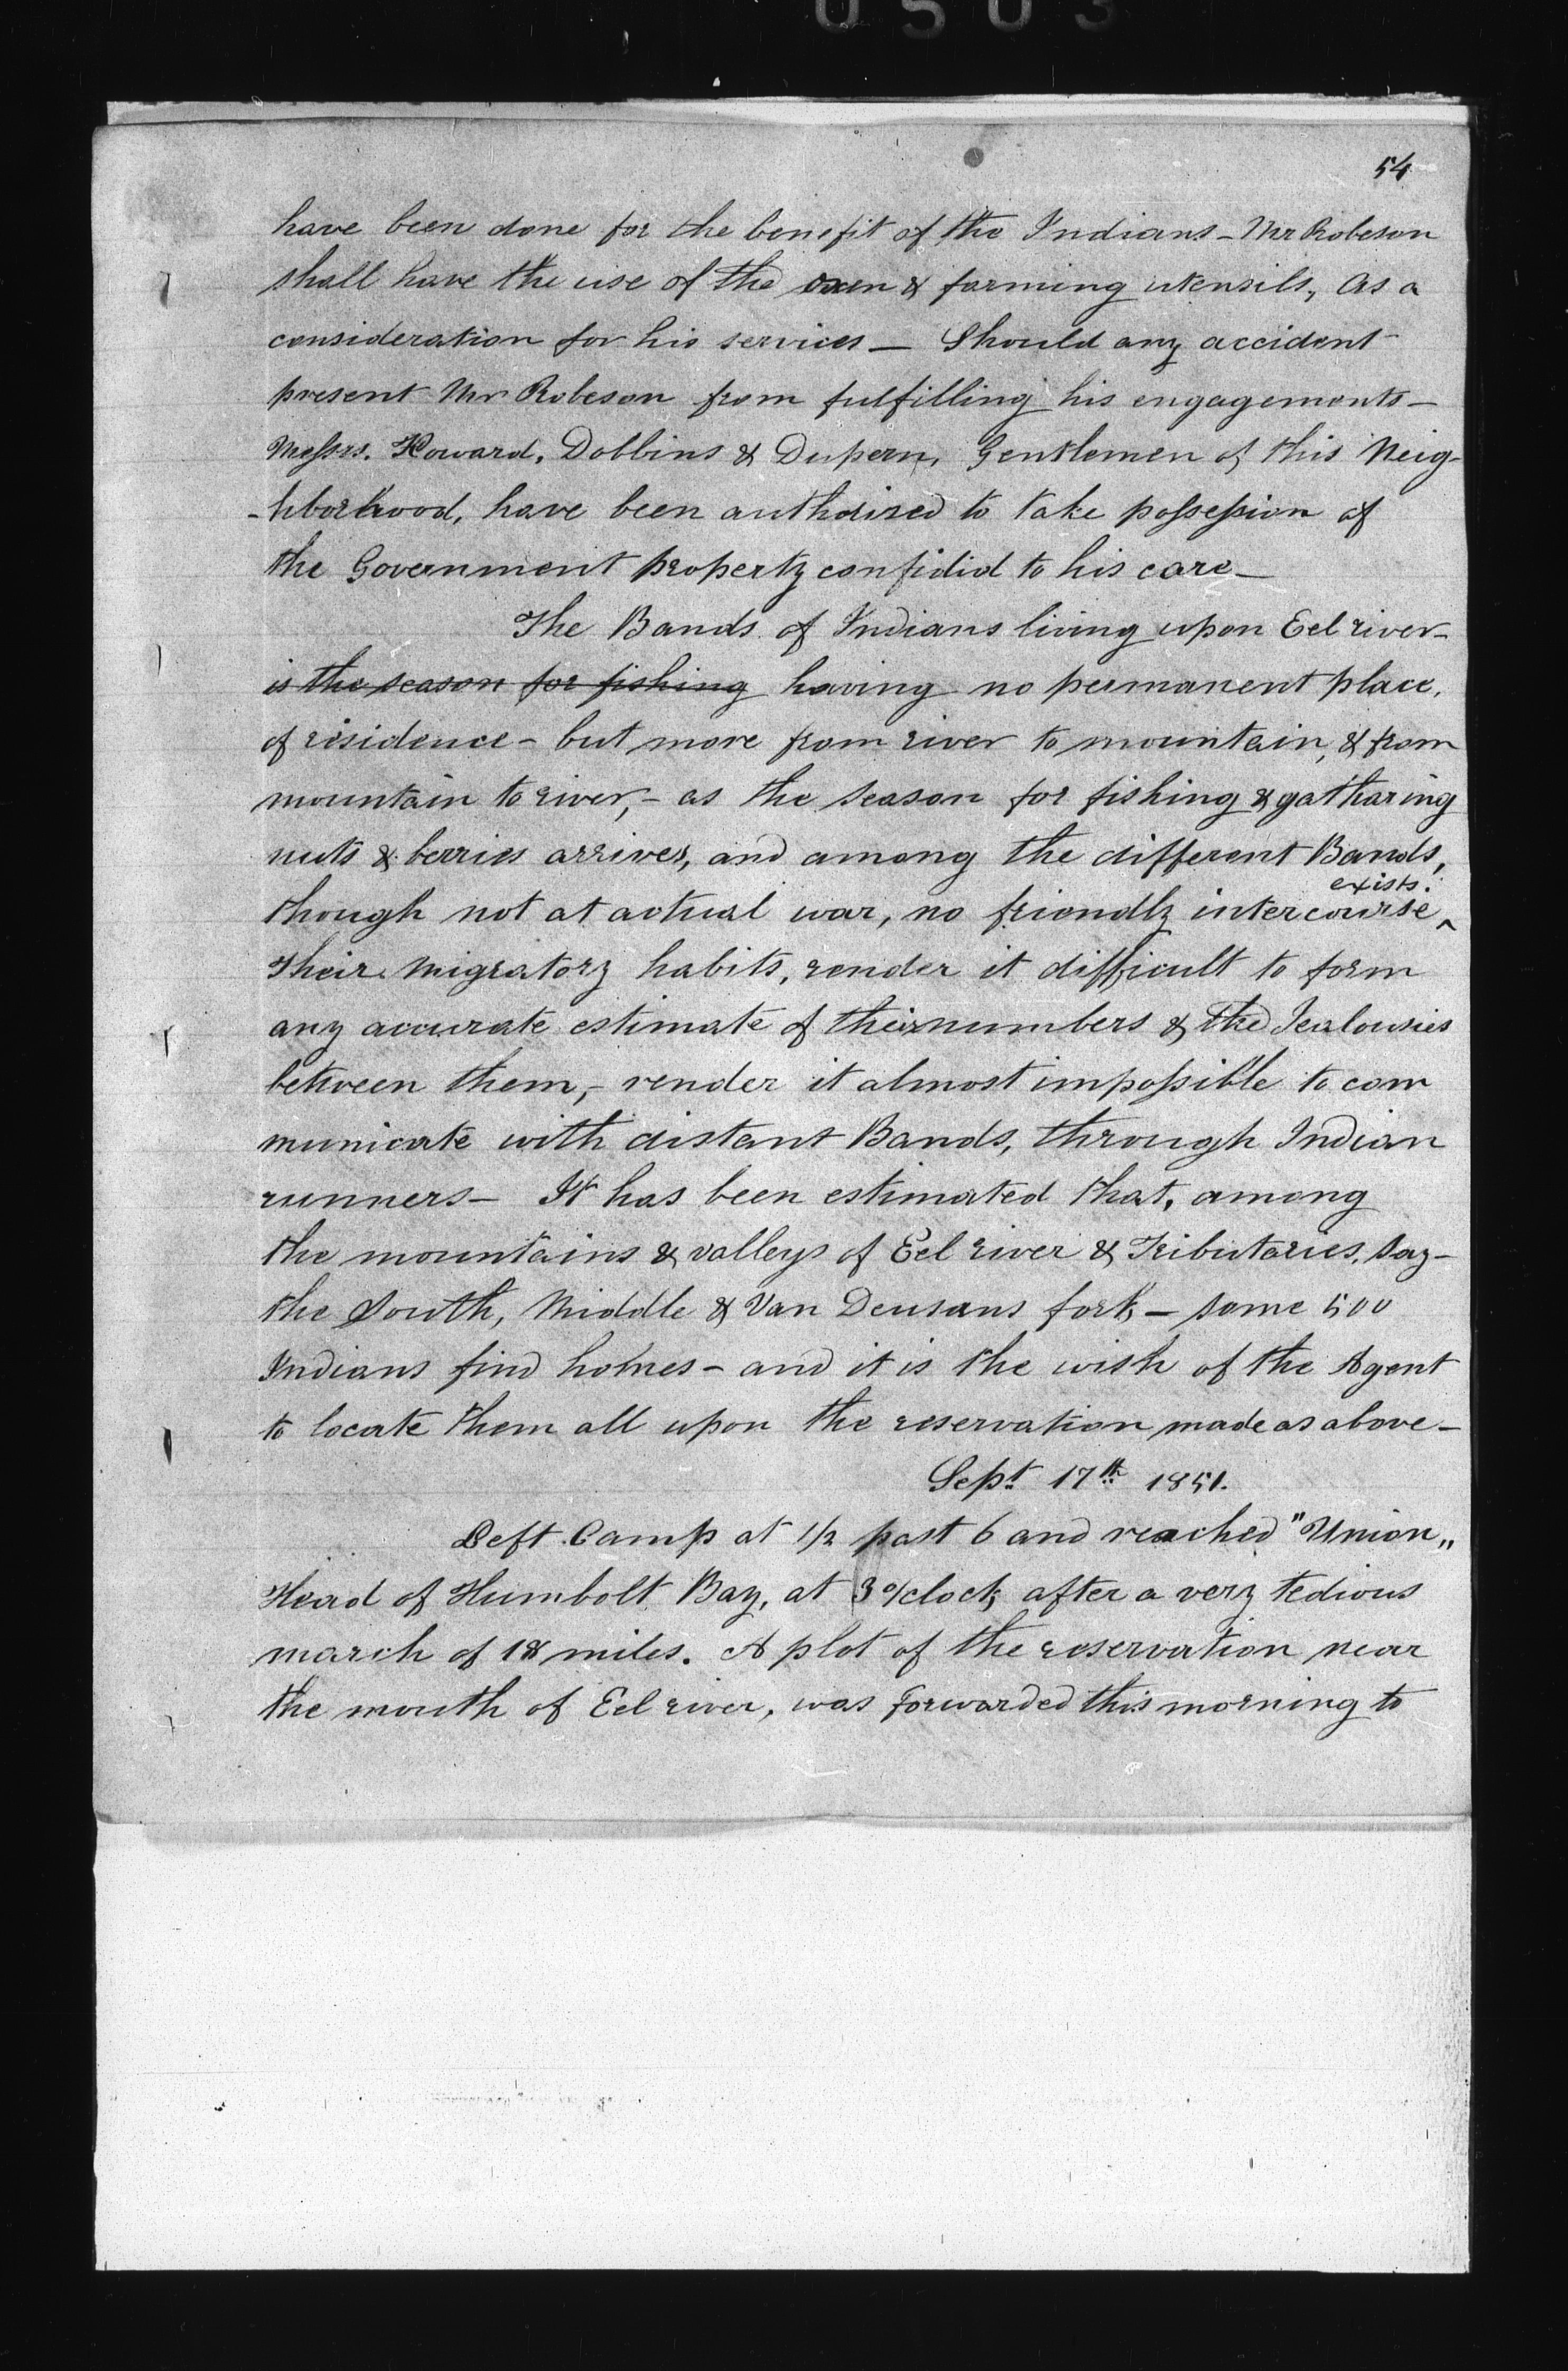 0503
54
have been done for the benefit of the Indians - Mr Robeson
shall have the use of the oxen & farming utensils, as a
consideration for his services — Should any accident
present Mr Robeson from fulfilling his engagements —
Messrs. Howard, Dobbins & Dupern, Gentlemen of this Neig-
-hborhood, have been authorised to take possession of
the Government property confidid to his care —
The Bands of Indians living upon Eel river -
is the season for fishing having no permanent place,
of residence - but move from river to mountain, & from
mountain to river, - as the season for fishing & gatharing
nuts & berries arrives, and among the different Bands,
exists.
though not at actual war, no friendly intercourse ^
Their migratory habits, render it difficult to form
any accurate estimate of their numbers & the Jealousies
between them, - render it almost impossible to com
municate with distant Bands, through Indian
runners - It has been estimated that, among
the mountains & valleys of Eel river & Tributaries, say -
the South, Middle & Van Deusans fork - some 500
Indians find homes - and it is the wish of the Agent
to locate them all upon the reservation made as above -
Sept 17th 1851.
Left Camp at 1/2 past 6 and reached "Union„
Head of Humbolt Bay, at 3 o/clock, after a very tedious
march of 18 miles. A plot of the reservation near
the mouth of Eel river, was forwarded this morning to